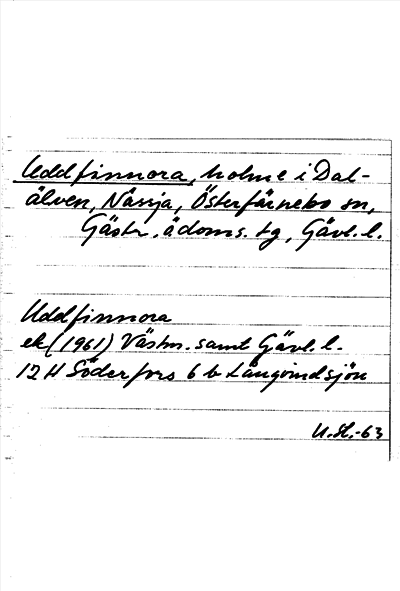 Uddfinnora, holme i Dal-
älven, Nässja, Österfärnebo sn,
Gästr. ådoms. tg, Gävl. l.
Uddfinnora
ek (1961) Västm. samt Gävl. l.
12 H Söderfors 6 b Långvindsjön
U.Sl.-63